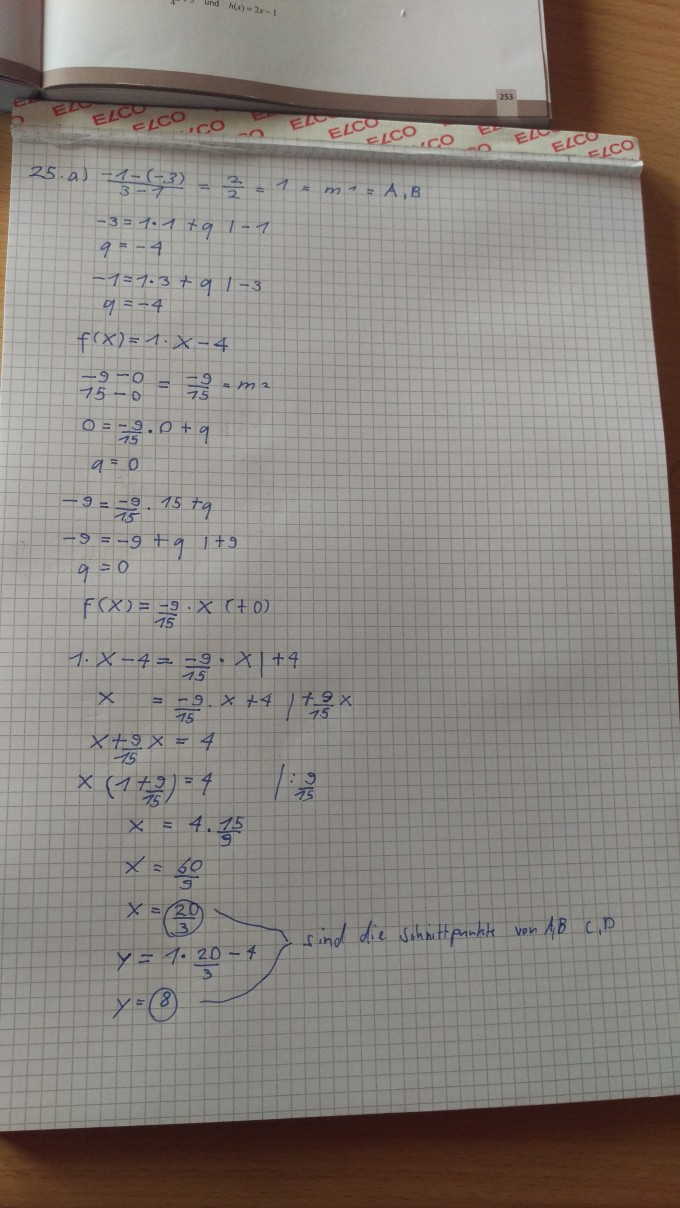 und h(x) = 2x − 1
253
ELCO ELCO ELCO ELCO ELCO
ELCO ELCO ELCO ELCO
25. a) \frac{-1-(-3)}{3-1} = \frac{2}{2} = 1 = m1 = A,B
-3 = 1·1 + q | -1
q = -4
-1 = 1·3 + q | -3
q = -4
f(x) = 1·x - 4
\frac{-9-0}{15-0} = \frac{-9}{15} = m2
0 = \frac{-9}{15}·0 + q
q = 0
-9 = \frac{-9}{15}·15 + q
-9 = -9 + q | +9
q = 0
f(x) = \frac{-9}{15}·x (+0)
1·x - 4 = \frac{-9}{15}·x | +4
x = \frac{-9}{15}·x + 4 | +\frac{9}{15}x
x + \frac{9}{15}x = 4
x (1 + \frac{9}{15}) = 4 | : \frac{9}{15}
x = 4·\frac{15}{9}
x = \frac{60}{9}
x = \frac{20}{3}
sind die Schnittpunkte von A,B C,D
y = 1·\frac{20}{3} - 4
y = 8